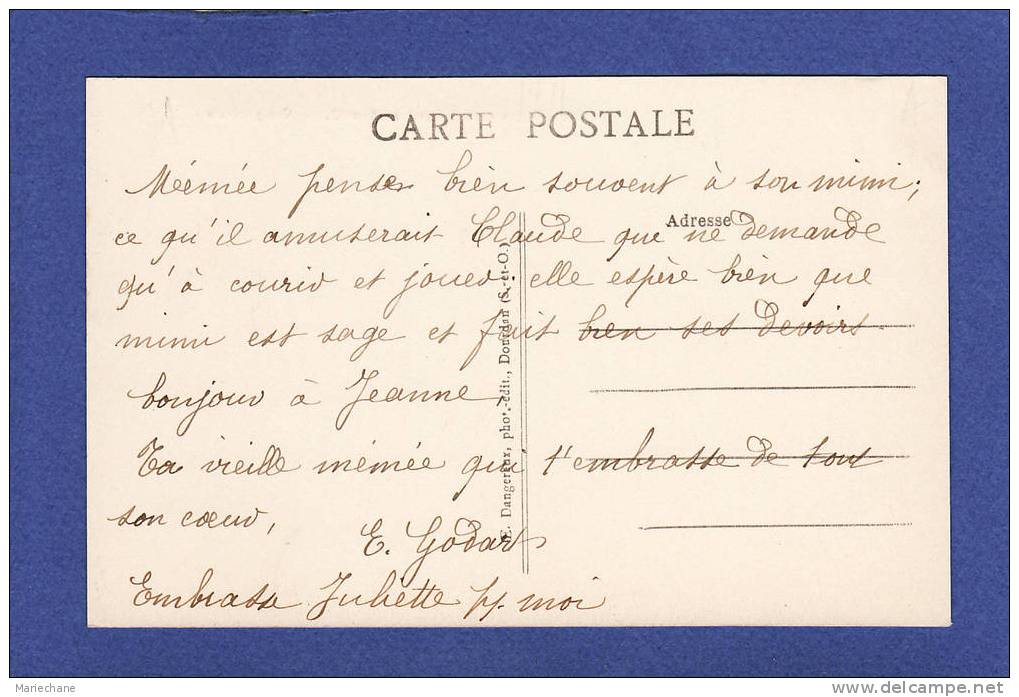 CARTE POSTALE
Méémée penser bien souvent à son mimi;
Adresse
ce qu'il amuserait Claude que ne demande
qu'à courir et jouer. elle espère bien que
mimi est sage et fait bien ses devoirs
bonjour à Jeanne
Ta vieille mémée qui t'embrasse de tout
son cœur,
E. Godart
Embrasse Juliette pr moi
E. Dangereux, phot.-édit., Dourdan (S.-et-O.)
Mariechane
www.delcampe.net